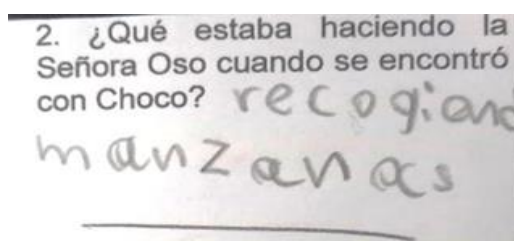 2. ¿Qué estaba haciendo la
Señora Oso cuando se encontró
con Choco? recogiand
manzanas